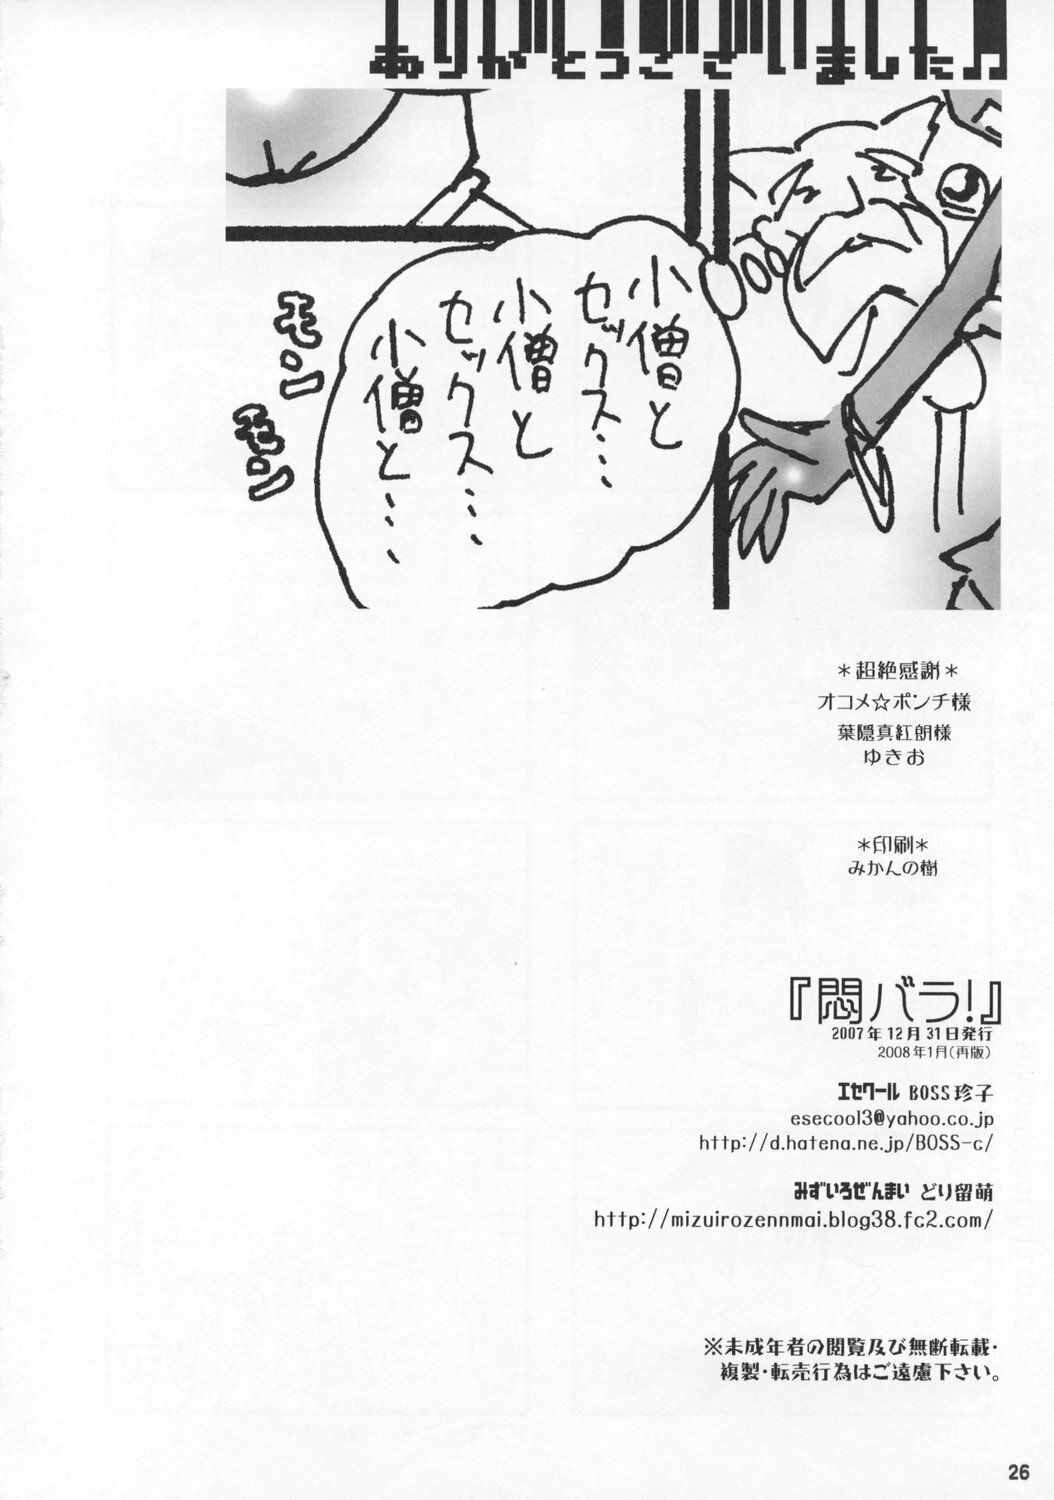 ありがとうございました♫
小僧と
セックス…
小僧と
セックス…
小僧と…
モン
モン
＊超絶感謝＊
オコメ☆ポンチ様
葉隠真紅朗様
ゆきお
＊印刷＊
みかんの樹
『悶バラ!』
2007年12月31日発行
2008年1月(再版)
エセクール BOSS珍子
esecool3@yahoo.co.jp
http://d.hatena.ne.jp/BOSS-c/
みずいろぜんまい どり留萌
http://mizuirozennmai.blog38.fc2.com/
※未成年者の閲覧及び無断転載・
複製・転売行為はご遠慮下さい。
26